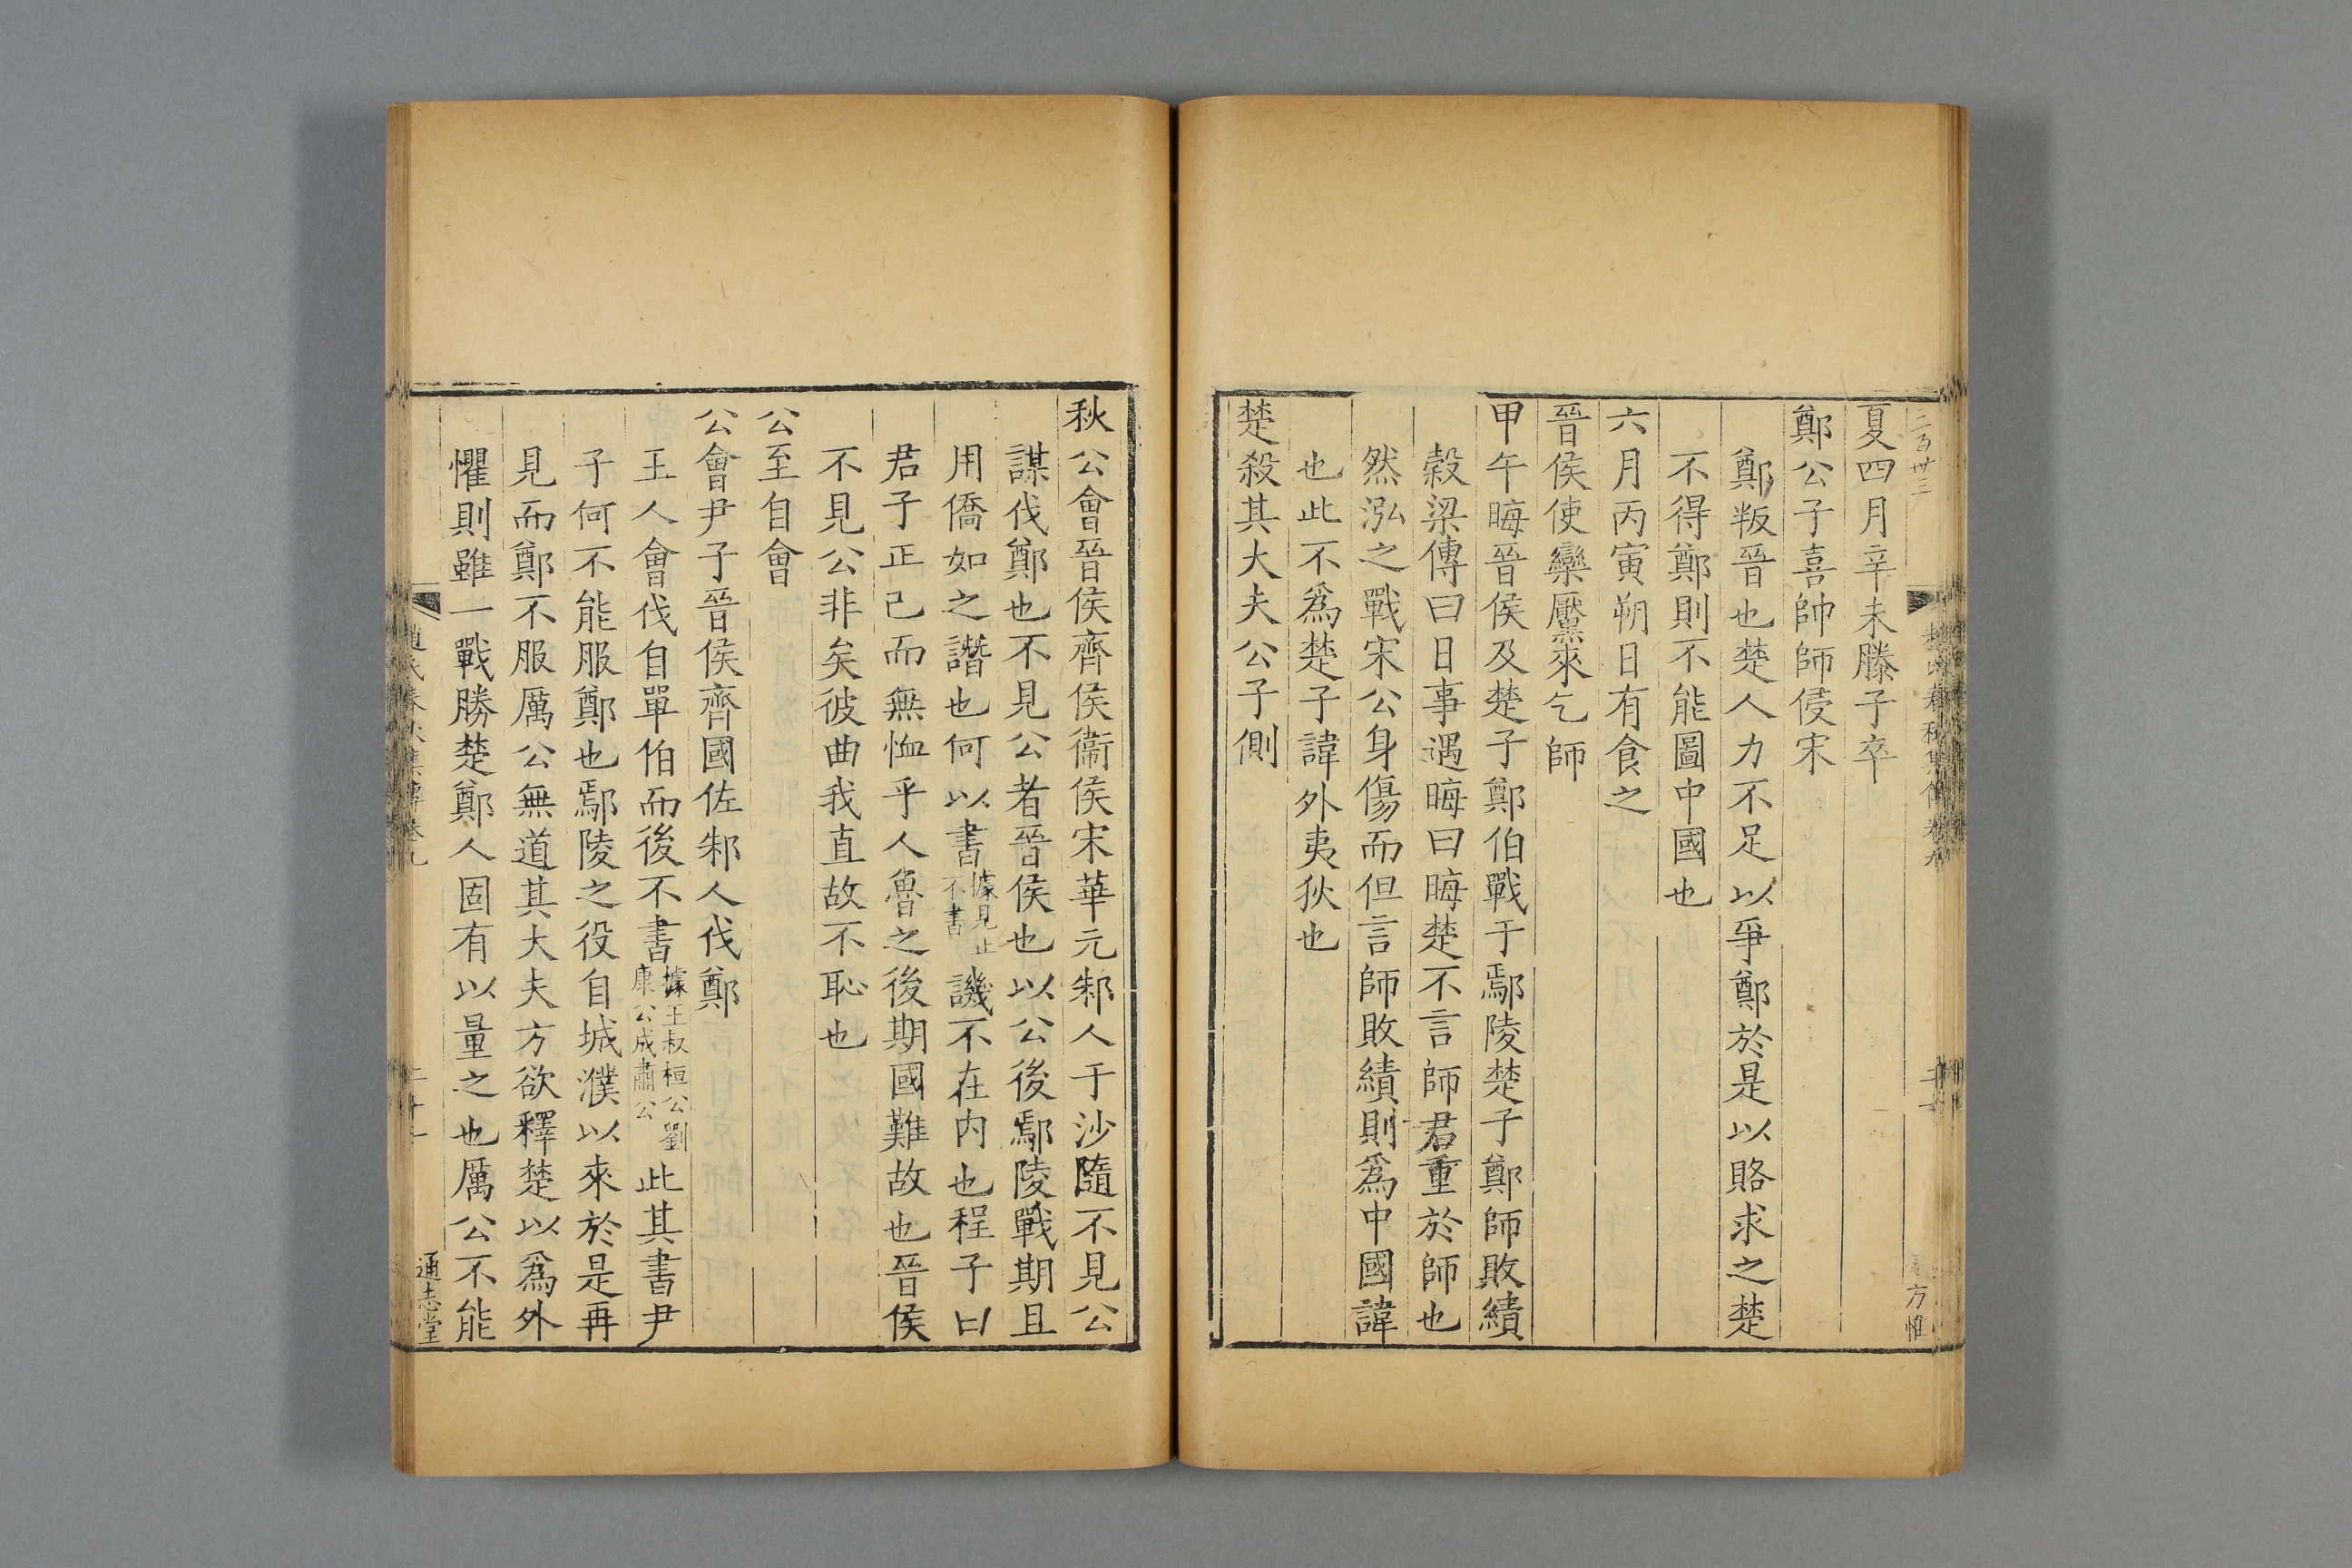 二百廿三
春秋集傳卷九
方惟
夏四月辛未滕子卒
鄭公子喜帥師侵宋
鄭叛晉也楚人力不足以爭鄭於是以賂求之楚
不得鄭則不能圖中國也
六月丙寅朔日有食之
晉侯使欒黶來乞師
甲午晦晉侯及楚子鄭伯戰于鄢陵楚子鄭師敗績
穀梁傳曰日事遇晦曰晦楚不言師君重於師也
然泓之戰宋公身傷而但言師敗績則爲中國諱
也此不爲楚子諱外夷狄也
楚殺其大夫公子側
秋公會晉侯齊侯衞侯宋華元邾人于沙隨不見公
謀伐鄭也不見公者晉侯也以公後鄢陵戰期且
用僑如之譖也何以書據見止不書譏不在內也程子曰
君子正己而無恤乎人魯之後期國難故也晉侯
不見公非矣彼曲我直故不恥也
公至自會
公會尹子晉侯齊國佐邾人伐鄭
王人會伐自單伯而後不書據王叔桓公劉康公成肅公此其書尹
子何不能服鄭也鄢陵之役自城濮以來於是再
見而鄭不服厲公無道其大夫方欲釋楚以爲外
懼則雖一戰勝楚鄭人固有以量之也厲公不能
趙氏春秋集傳卷九
通志堂